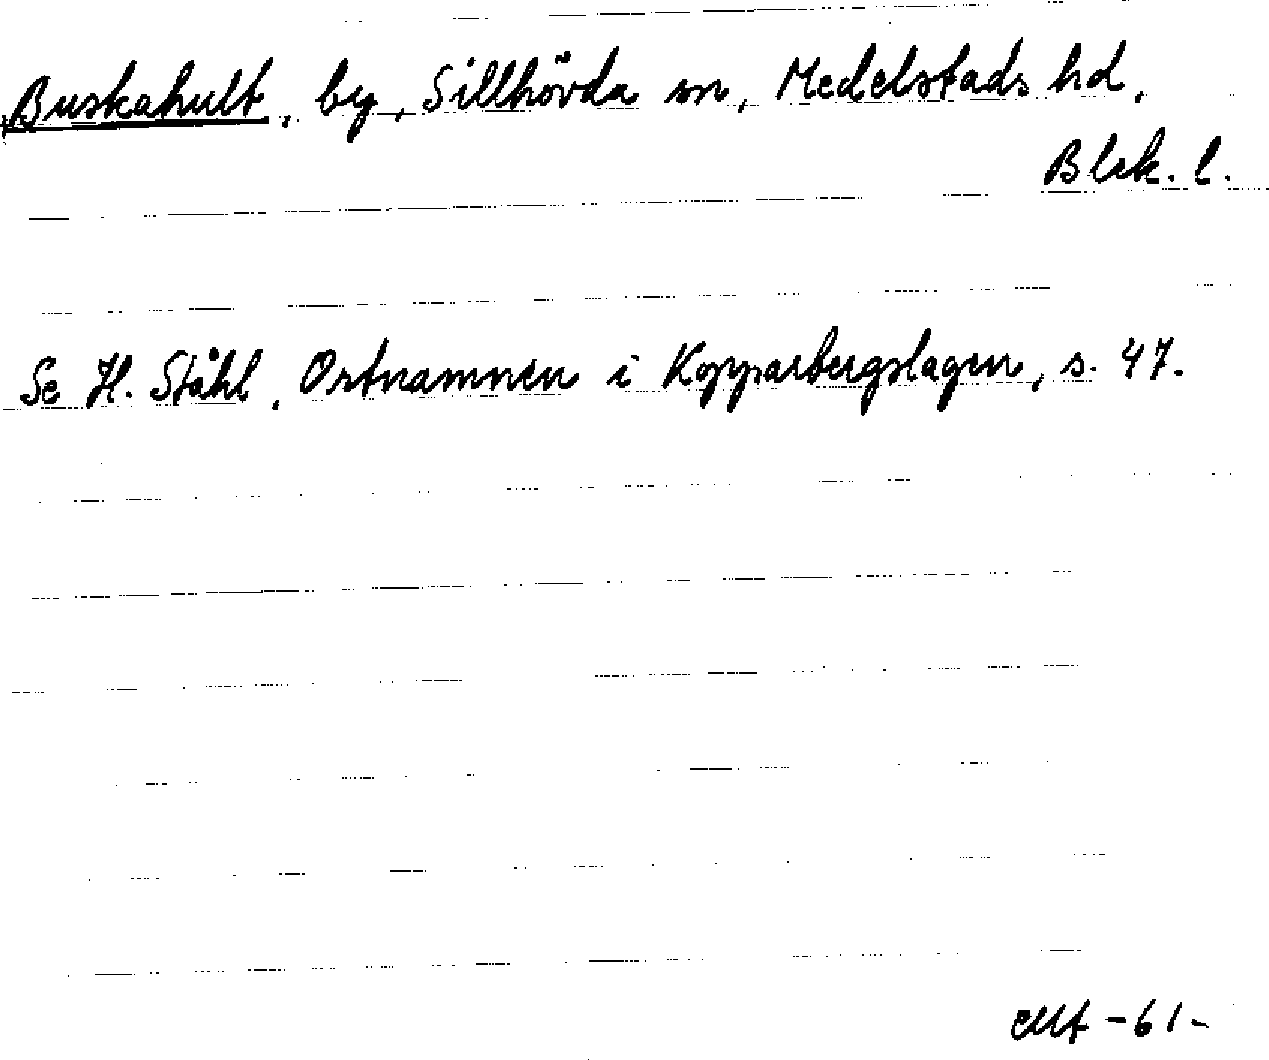 Buskahult, by, Sillhövda sn, Medelstads hd,
Blek. l.
Se H. Ståhl, Ortnamnen i Kopparbergslagen, s. 47.
-61-